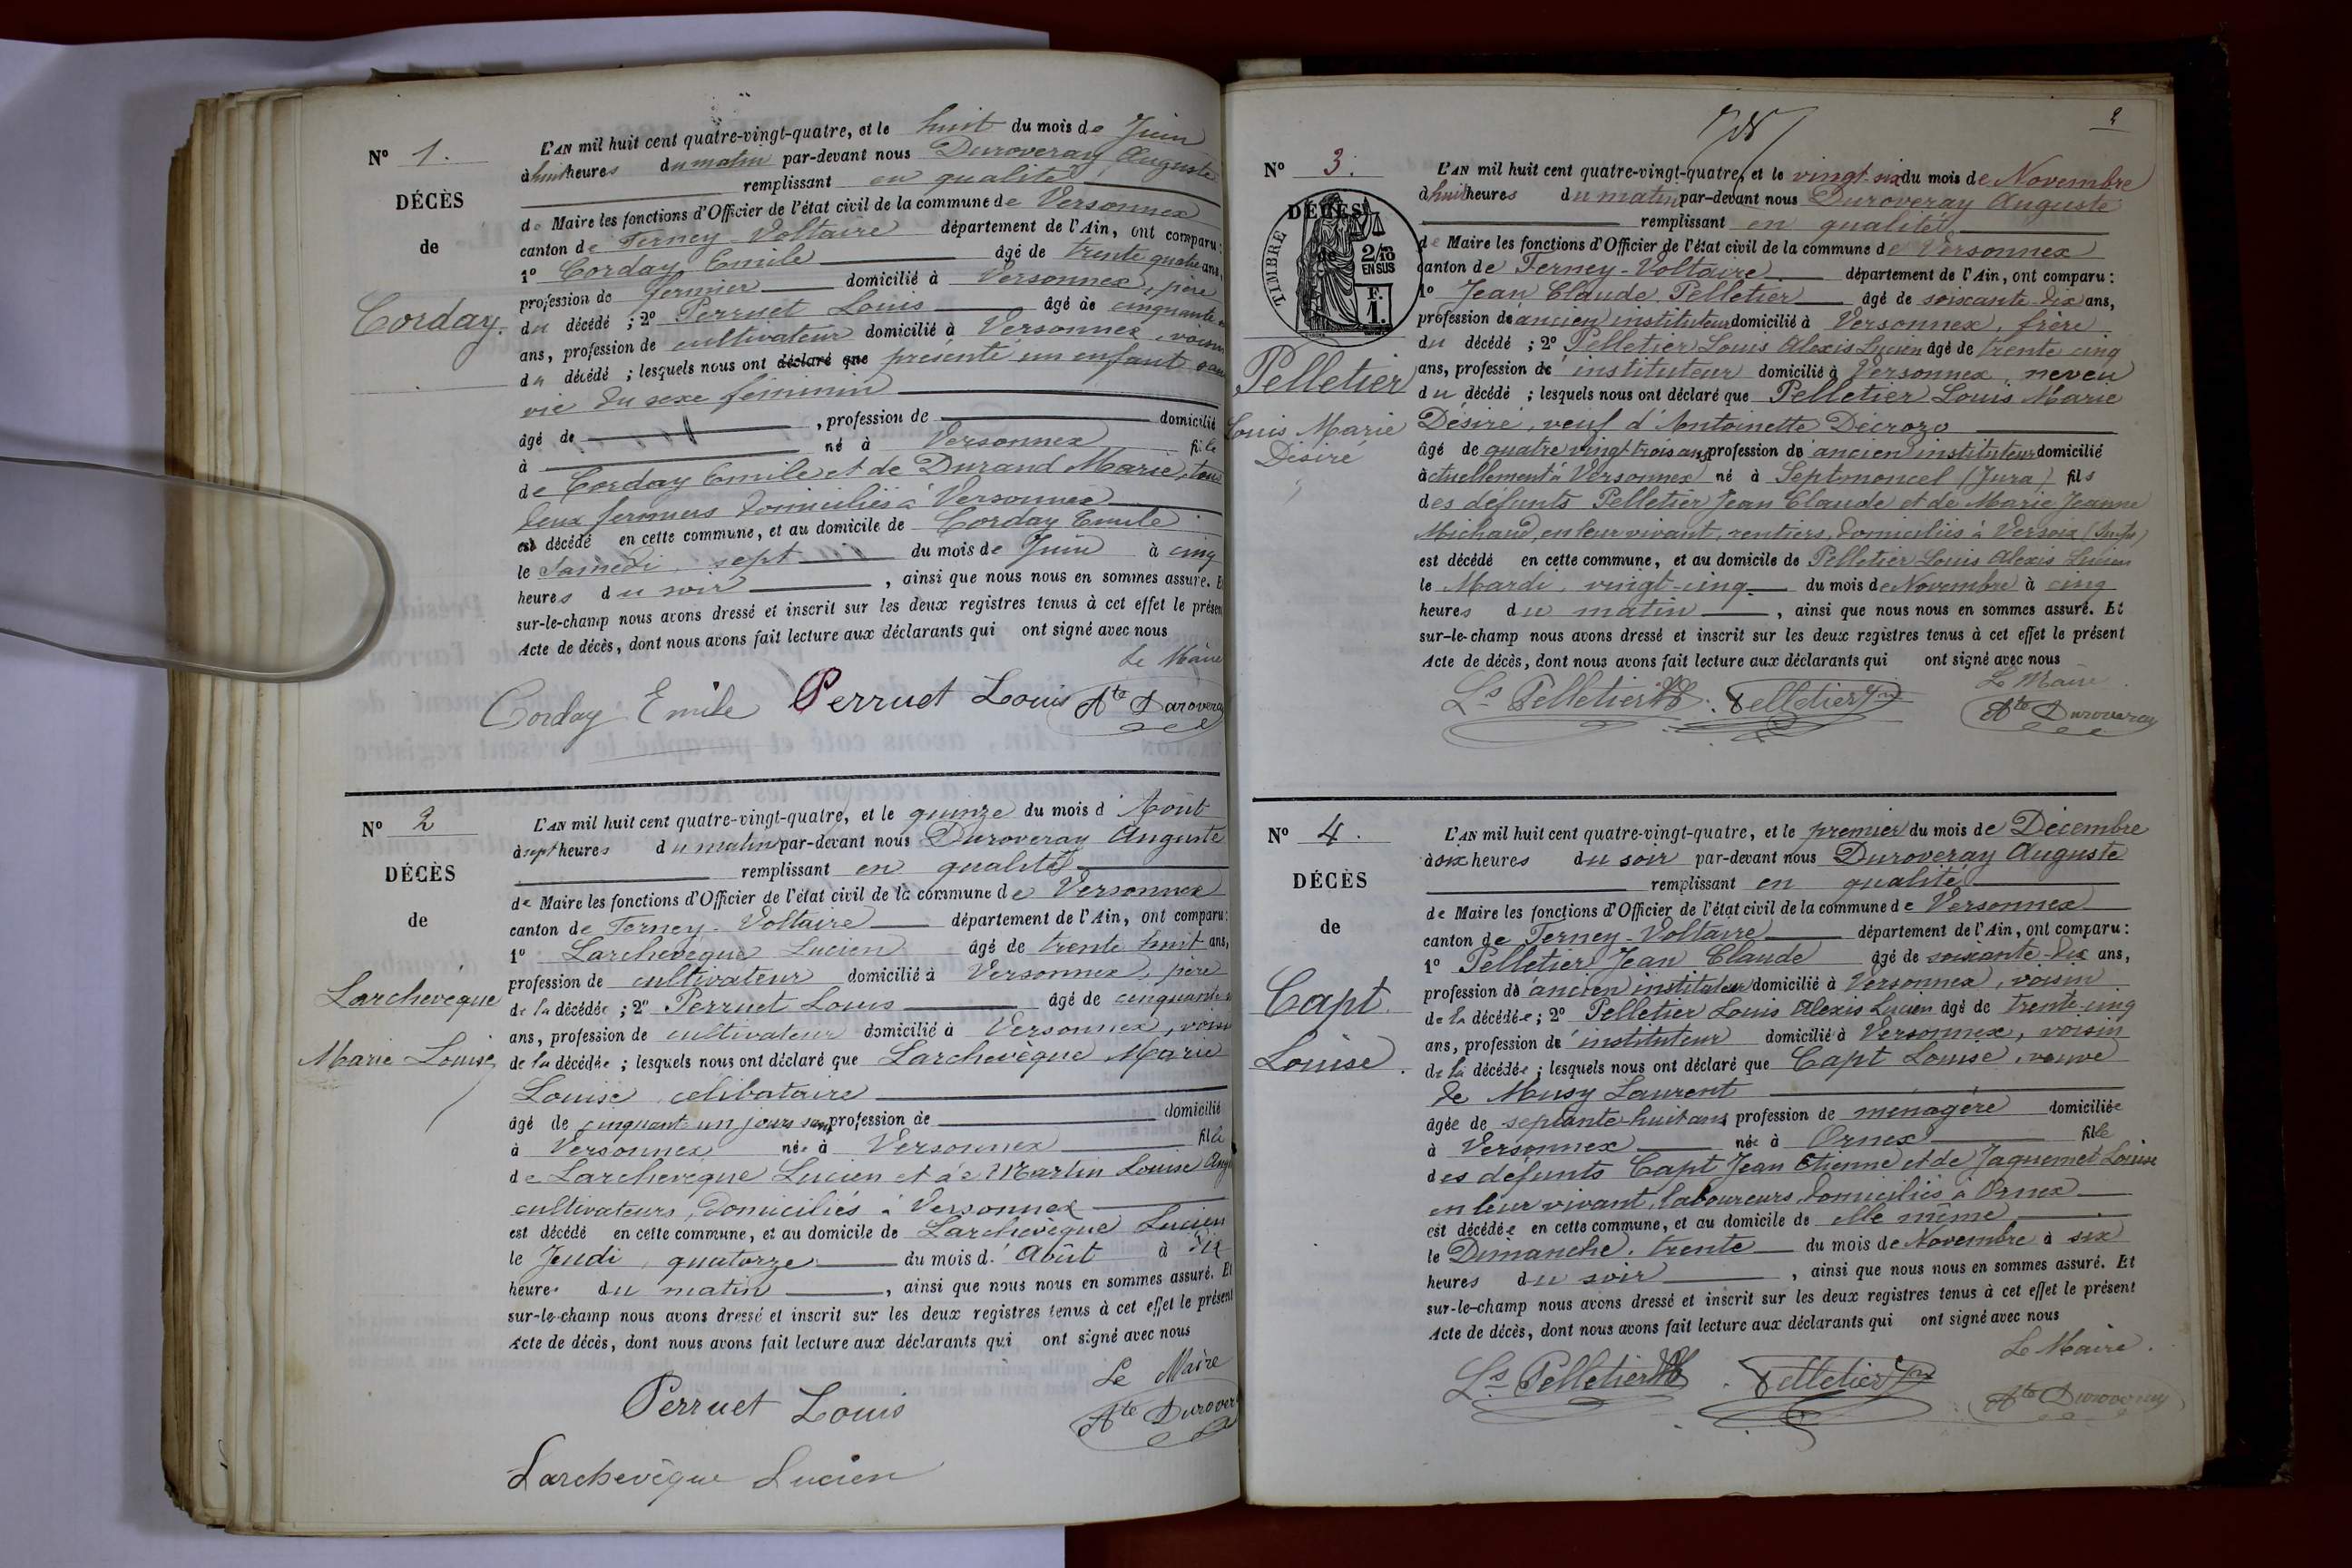 N° 1.
DÉCÈS
de
Corday.
L'AN mil huit cent quatre-vingt-quatre, et le huit du mois de Juin
à huit heures du matin par-devant nous Duroveray Auguste
remplissant en qualité
de Maire les fonctions d'Officier de l'état civil de la commune de Versonnex
canton de Ferney-Voltaire département de l'Ain, ont comparu:
1° Corday Emile âgé de trente quatre ans,
profession de fermier domicilié à Versonnex, père
du décédé ; 2° Perruet Louis âgé de cinquante
ans, profession de cultivateur domicilié à Versonnex, voisin
du décédé ; lesquels nous ont déclaré que présenté un enfant sans
vie du sexe féminin
âgé de , profession de domicilié
à né à Versonnex fille
de Corday Emile et de Durand Marie, tous
deux fermiers domiciliés à Versonnex
est décédé en cette commune, et au domicile de Corday Emile
le Samedi sept du mois de Juin à cinq
heures du soir , ainsi que nous nous en sommes assuré. Et
sur-le-champ nous avons dressé et inscrit sur les deux registres tenus à cet effet le présent
Acte de décès, dont nous avons fait lecture aux déclarants qui ont signé avec nous
Le Maire
Corday Emile Perruet Louis Ate Duroveray
N° 2
DÉCÈS
de
Larchevêque
Marie Louise
L'AN mil huit cent quatre-vingt-quatre, et le quinze du mois d'Août
à sept heures du matin par-devant nous Duroveray Auguste
remplissant en qualité
de Maire les fonctions d'Officier de l'état civil de la commune de Versonnex
canton de Ferney-Voltaire département de l'Ain, ont comparu:
1° Larchevêque Lucien âgé de trente huit ans,
profession de cultivateur domicilié à Versonnex, père
de la décédée ; 2° Perruet Louis âgé de cinquante
ans, profession de cultivateur domicilié à Versonnex, voisin
de la décédée ; lesquels nous ont déclaré que Larchevêque Marie
Louise, célibataire
âgé de cinquant un jours sans profession de domicilié
à Versonnex née à Versonnex fille
de Larchevêque Lucien et de Martin Louise
cultivateurs, domiciliés à Versonnex
est décédé en cette commune, et au domicile de Larchevêque Lucien
le Jeudi quatorze du mois d'Août à dix
heures du matin , ainsi que nous nous en sommes assuré. Et
sur-le-champ nous avons dressé et inscrit sur les deux registres tenus à cet effet le présent
Acte de décès, dont nous avons fait lecture aux déclarants qui ont signé avec nous
Le Maire
Perruet Louis Ate Duroveray
Larchevêque Lucien
2
N° 3.
DÉCÈS
de
TIMBRE
2/10
EN SUS
F.
1.
Pelletier
Louis Marie
Désiré
L'AN mil huit cent quatre-vingt-quatre, et le vingt-six du mois de Novembre
à huit heures du matin par-devant nous Duroveray Auguste
remplissant en qualité
de Maire les fonctions d'Officier de l'état civil de la commune de Versonnex
canton de Ferney-Voltaire département de l'Ain, ont comparu:
1° Jean Claude Pelletier âgé de soixante-dix ans,
profession de ancien instituteur domicilié à Versonnex, frère
du décédé ; 2° Pelletier Louis Alexis Lucien âgé de trente cinq
ans, profession de instituteur domicilié à Versonnex, neveu
du décédé ; lesquels nous ont déclaré que Pelletier Louis Marie
Désiré, veuf d'Antoinette Décrozo
âgé de quatre vingt trois ans profession de ancien instituteur domicilié
actuellement à Versonnex né à Septmoncel (Jura) fils
des défunts Pelletier Jean Claude et de Marie Jeanne
Michaud, en leur vivant, rentiers, domiciliés à Versoix (Suisse)
est décédé en cette commune, et au domicile de Pelletier Louis Alexis Lucien
le Mardi, vingt-cinq du mois de Novembre à cinq
heures du matin , ainsi que nous nous en sommes assuré. Et
sur-le-champ nous avons dressé et inscrit sur les deux registres tenus à cet effet le présent
Acte de décès, dont nous avons fait lecture aux déclarants qui ont signé avec nous
Le Maire
Ls Pelletier Pelletier Ate Duroveray
N° 4.
DÉCÈS
de
Capt
Louise
L'AN mil huit cent quatre-vingt-quatre, et le premier du mois de Décembre
à six heures du soir par-devant nous Duroveray Auguste
remplissant en qualité
de Maire les fonctions d'Officier de l'état civil de la commune de Versonnex
canton de Ferney-Voltaire département de l'Ain, ont comparu:
1° Pelletier Jean Claude âgé de soixante-dix ans,
profession de ancien instituteur domicilié à Versonnex, voisin
de la décédée ; 2° Pelletier Louis Alexis Lucien âgé de trente-cinq
ans, profession de instituteur domicilié à Versonnex, voisin
de la décédée ; lesquels nous ont déclaré que Capt Louise, veuve
de Musy Laurent
âgée de septante-huit ans profession de ménagère domiciliée
à Versonnex née à Ornex fille
des défunts Capt Jean Etienne et de Jaquemet Louise
en leur vivant, laboureurs domiciliés à Ornex
est décédée en cette commune, et au domicile de elle même
le Dimanche, trente du mois de Novembre à six
heures du soir , ainsi que nous nous en sommes assuré. Et
sur-le-champ nous avons dressé et inscrit sur les deux registres tenus à cet effet le présent
Acte de décès, dont nous avons fait lecture aux déclarants qui ont signé avec nous
Le Maire.
Ls Pelletier Pelletier Ate Duroveray